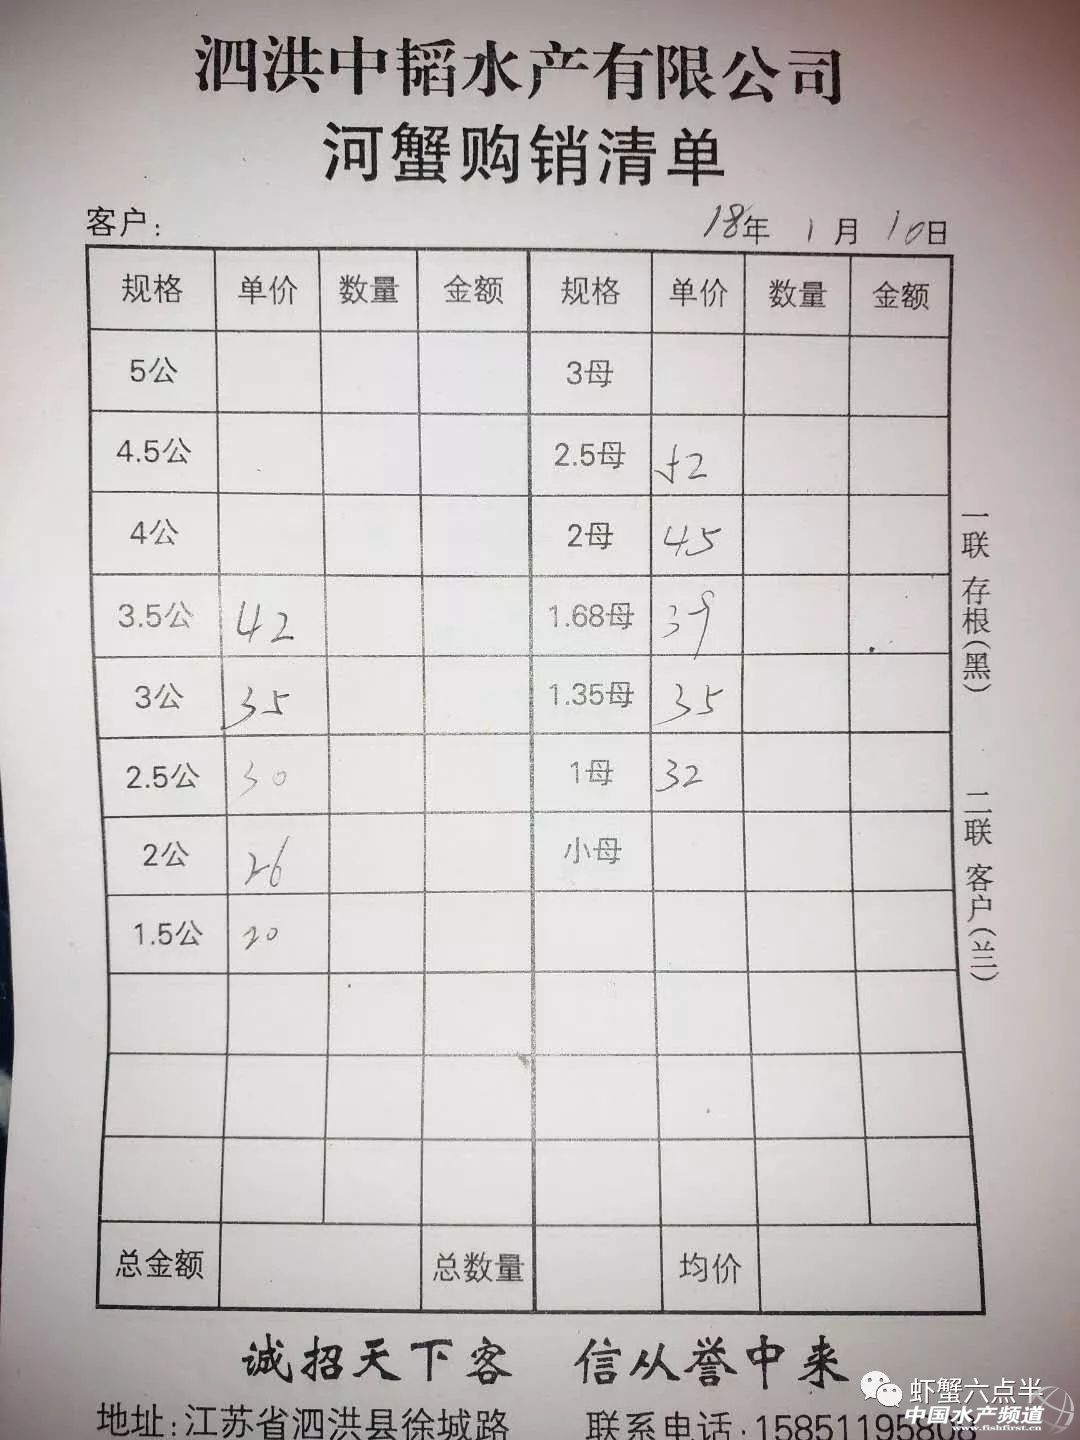 泗洪中韬水产有限公司
河蟹购销清单
客户: 18年 1月 10日
规格 单价 数量 金额 规格 单价 数量 金额
5公 3母
4.5公 2.5母 52
4公 2母 45
3.5公 42 1.68母 39
3公 35 1.35母 35
2.5公 30 1母 32
2公 26 小母
1.5公 20
总金额 总数量 均价
一联 存根(黑) 二联 客户(兰)
诚招天下客 信从誉中来
地址:江苏省泗洪县徐城路 联系电话:15851195806
虾蟹六点半
中国水产频道
www.fishfirst.cn